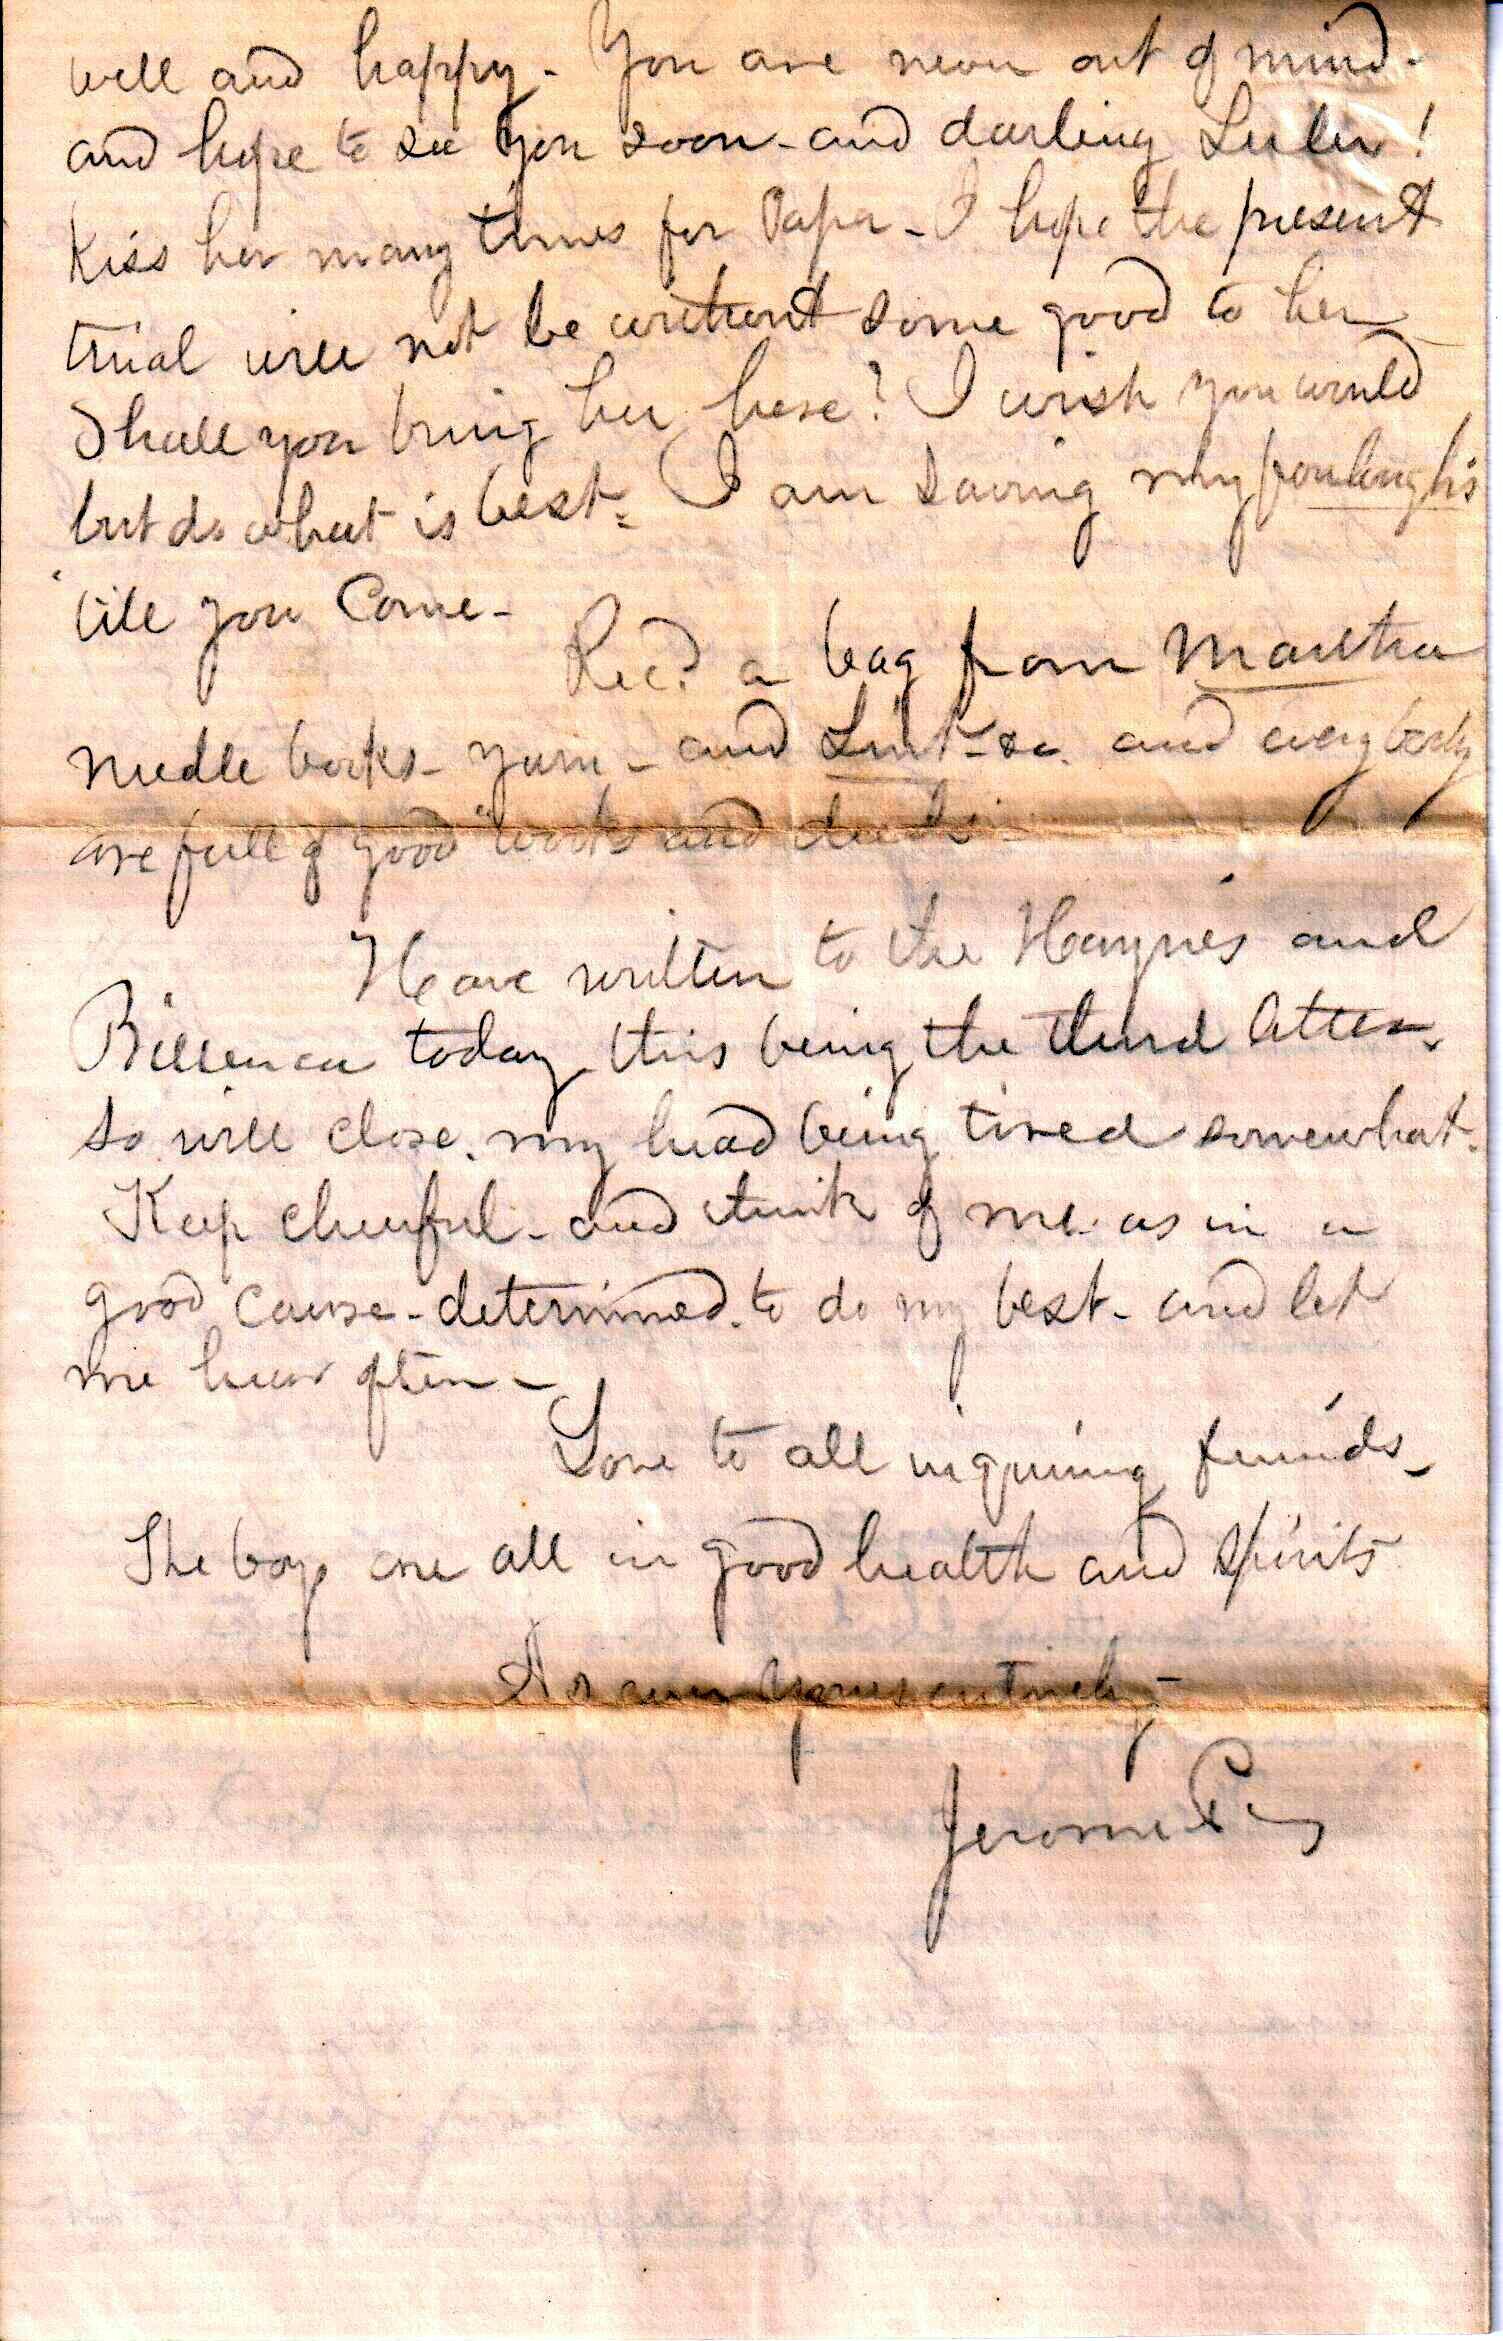 well and happy - You are never out of mind -
and hope to see you soon - and darling Lulu !
Kiss her many times for Papa - I hope the present
trial will not be without some good to her
Shall you bring her here ? I wish you would
but do what is best - I am saving my fourloughs
'till you Come -
Rec.d a bag from Martha
needle books - yarn - and Lint - &c. and every body
are full of good "works and deeds" -
Have written to the Haynes and
Billerica today, this being the third letter -
so will close. my head being tired somewhat.
Keep cheerful - and think of me as in a
good cause - determined to do my best - and let
me hear often -
Love to all inquiring friends -
The boys are all in good health and spirits
As ever yours entirely -
Jerome